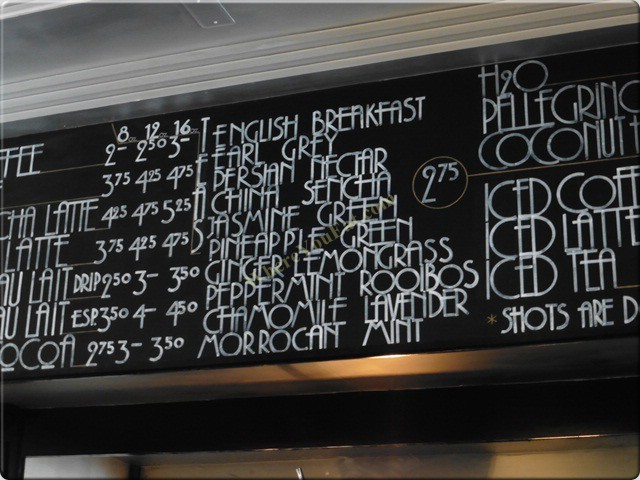 8oz 12oz 16oz
FFEE 2- 2 50 3-
E 3 75 4 25 4 75
CHA LATTE 4 25 4 75 5 25
LATTE 3 75 4 25 4 75
AU LAIT DRIP 2 50 3- 3 50
AU LAIT ESP. 3 50 4- 4 50
OCOA 2 75 3- 3 50
TEAS
ENGLISH BREAKFAST
EARL GREY
PERSIAN NECTAR
CHINA SENCHA
JASMINE GREEN
PINEAPPLE GREEN
GINGER LEMONGRASS
PEPPERMINT ROOIBOS
CHAMOMILE LAVENDER
MORROCAN MINT
2 75
H2O
PELLEGRINO
COCONUT H
ICED COFF
ICED LATTE
ICED TEA
*SHOTS ARE D
WhereYouEat.com